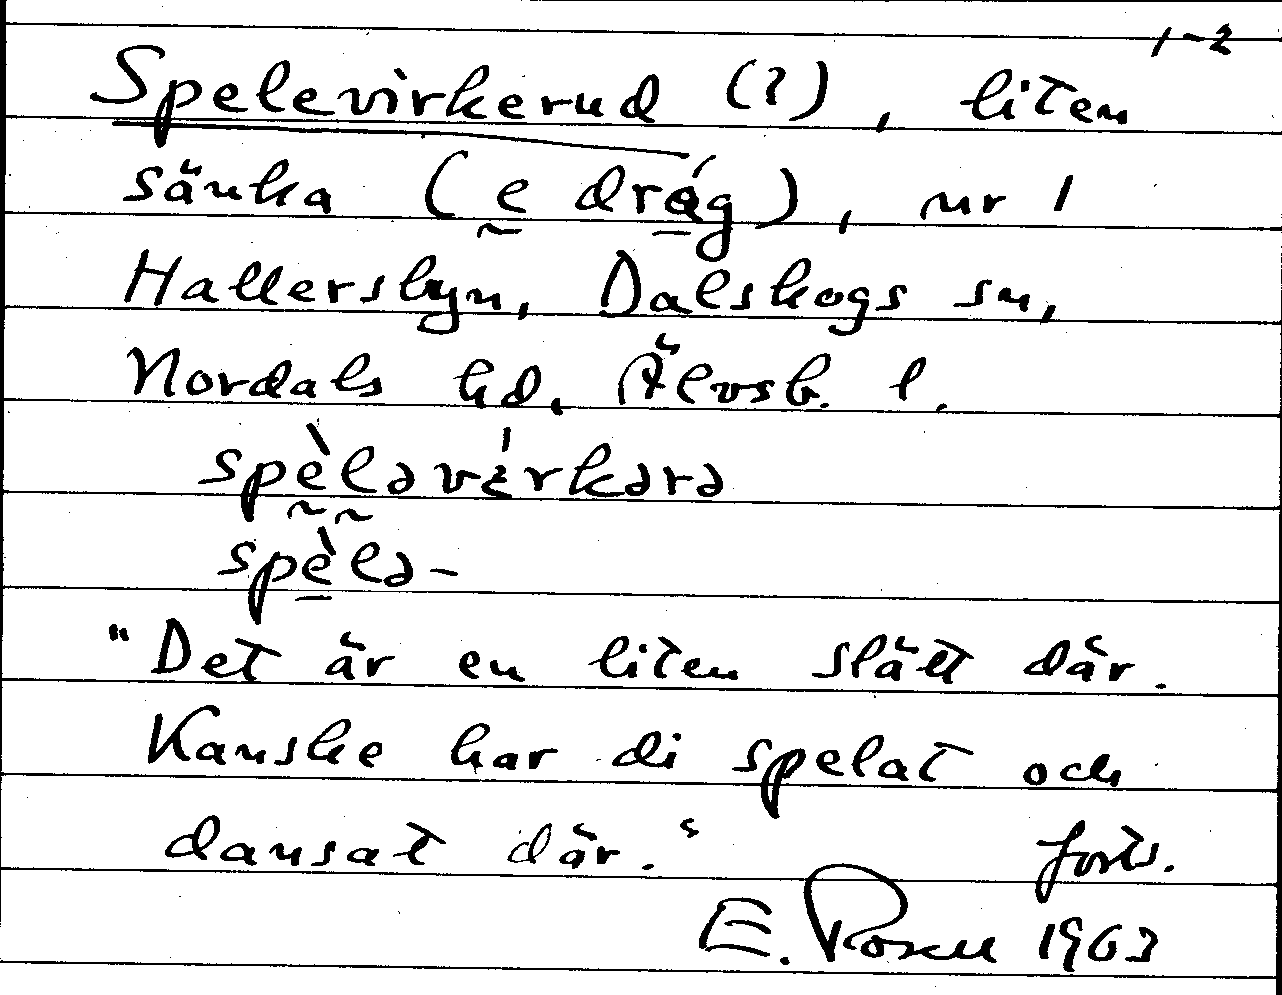 1-2
Spelevirkerud (?), liten
sänka (e dråg), nr 1
Hallersbyn, Dalskogs sn,
Nordals hd, Älvsb. l.
spèləvírkərə
spèlə-
"Det är en liten slätt där.
Kanske har di spelat och
dansat där." forts.
E. Rosell 1963